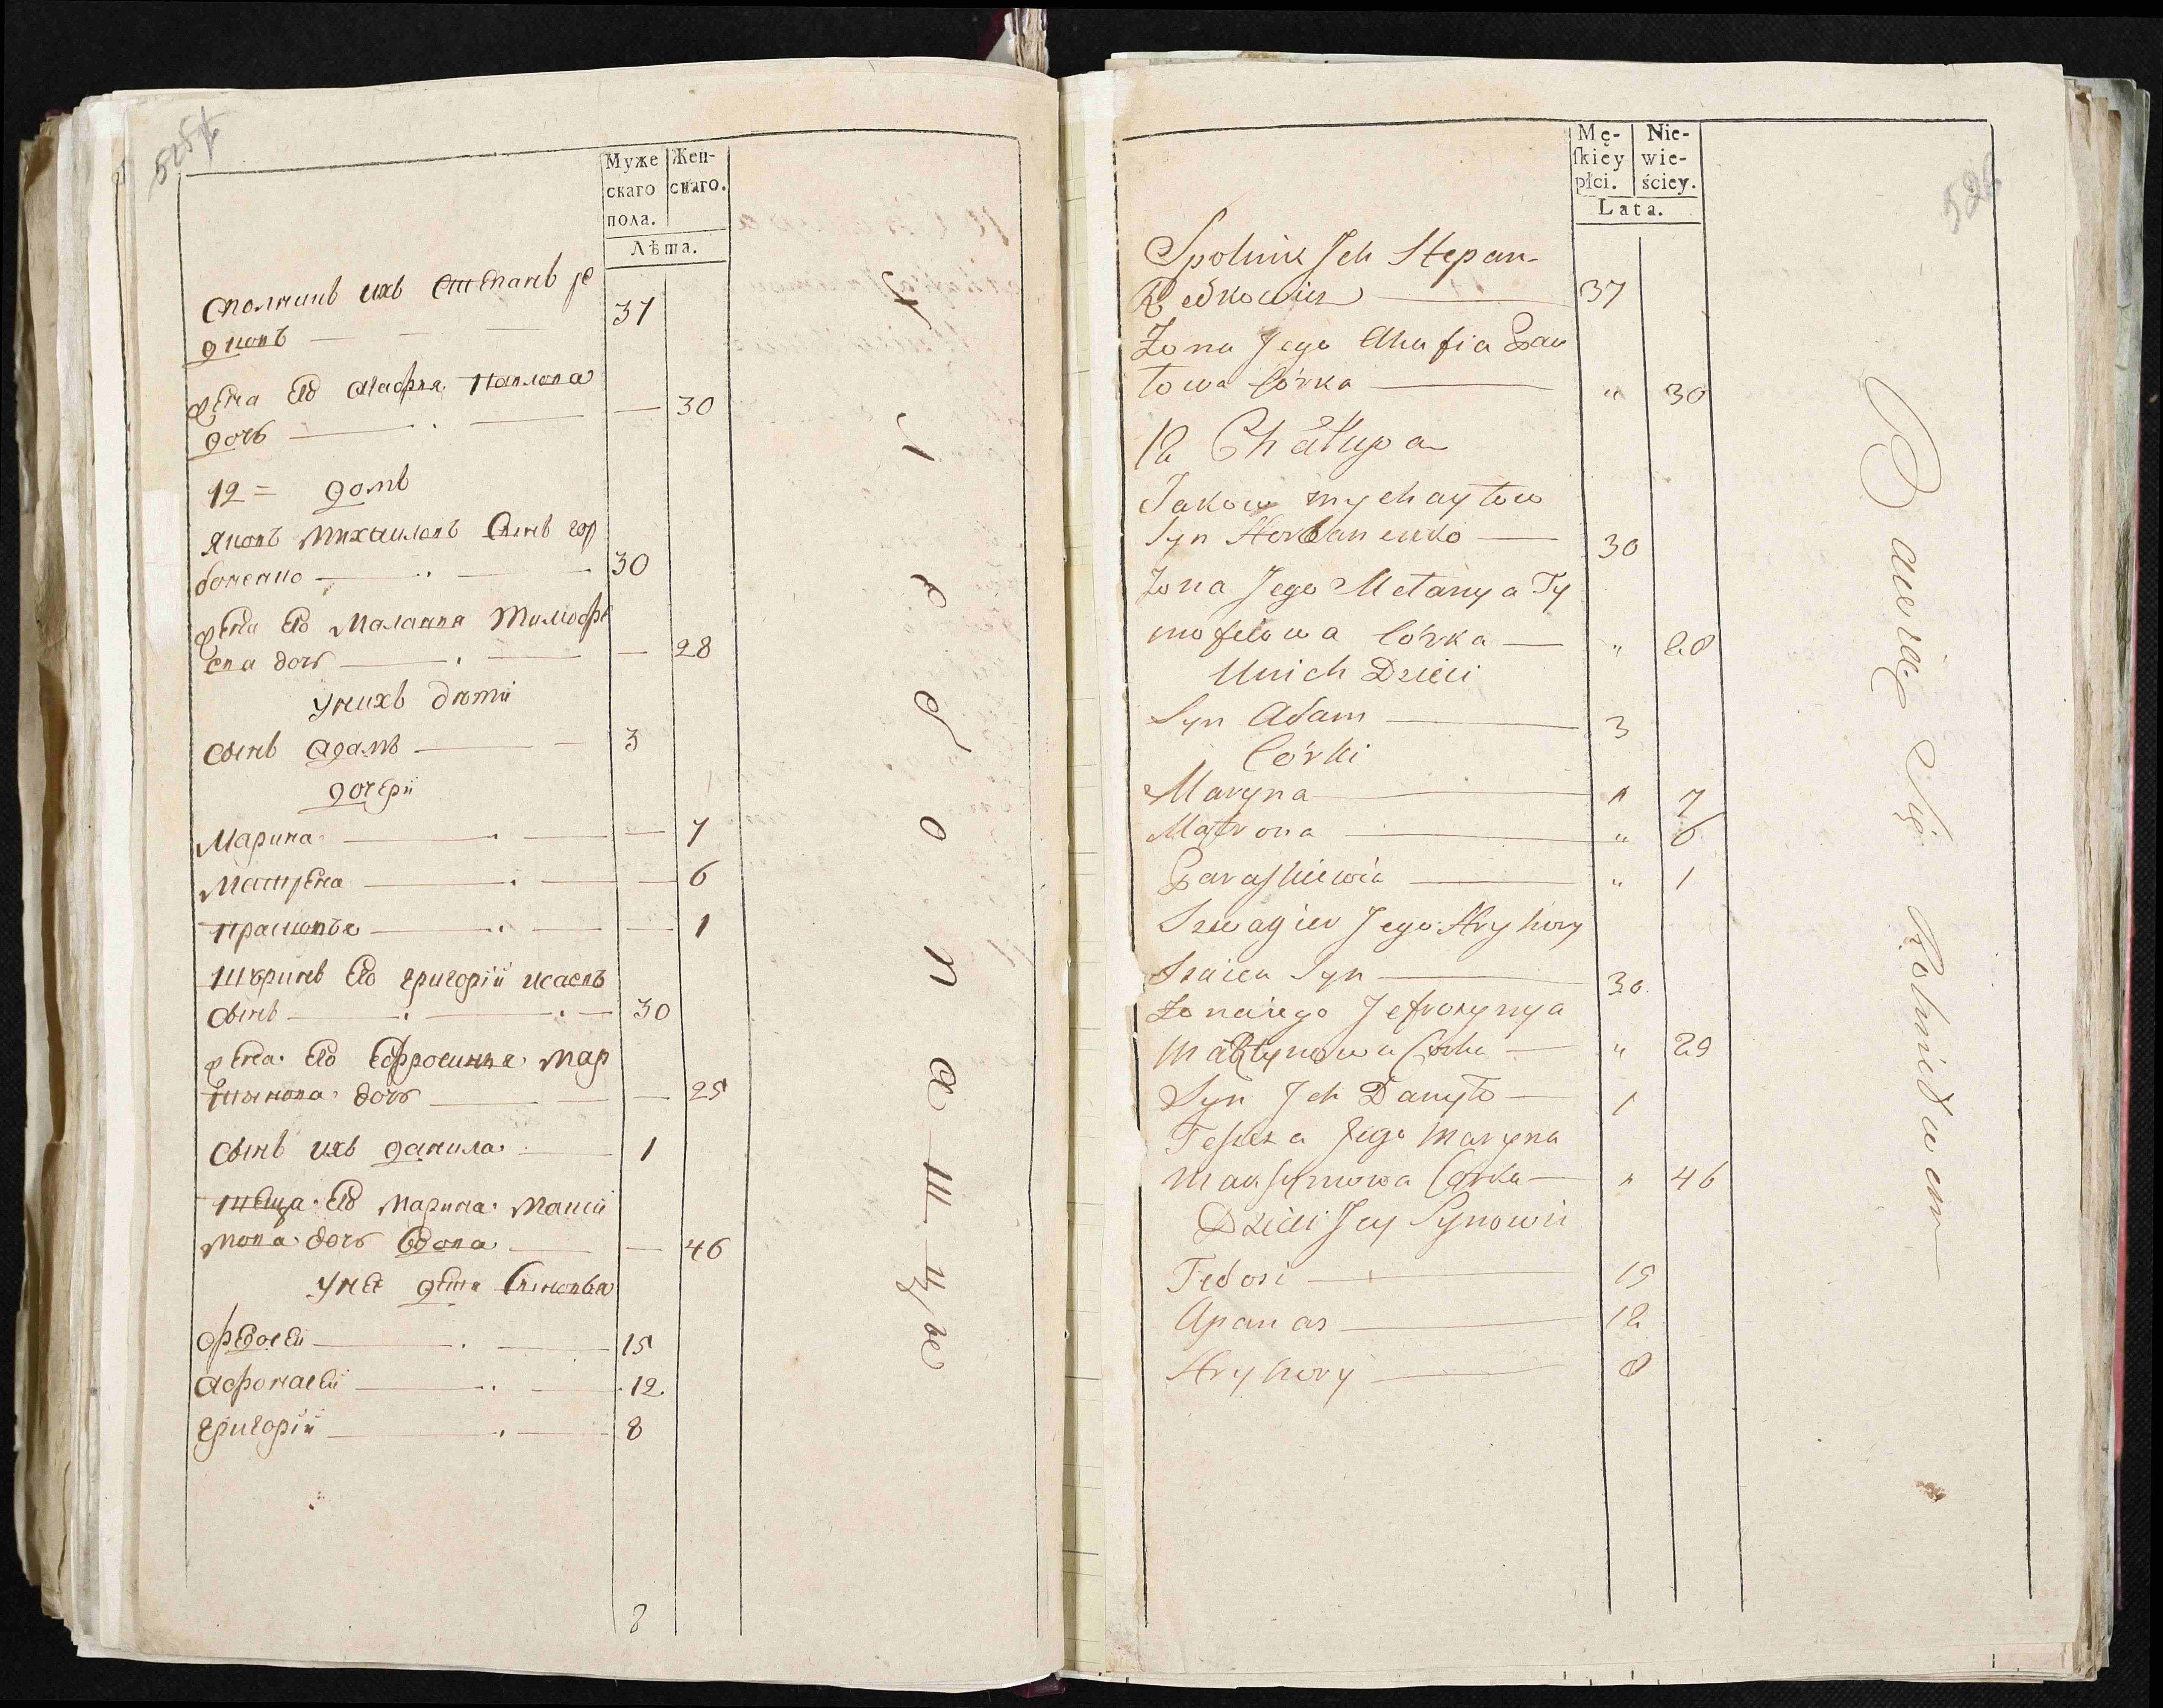 Муже Жен-
скаго скаго.
пола.
Лѣта.
сполникъ ихъ Степанъ ре
дковъ 37
жена его агафия Павлова
дочь 30
12 = домъ
Яковъ Михаиловъ Сынъ гор
боненко 30
жена его Малания Тимофе
ева дочь 28
унихъ дѣтй
сынъ адамъ 3
дочерй
Марина 7
Матрена 6
Прасковья 1
Шуринъ его григорій исаевъ
сынъ 30
жена его Ефросиния Мар
тинова дочь 29
сынъ ихъ данила 1
теща его Марина Макси
мова дочь вдова 46
унея дети Сыновья
федосей 15
афонасей 12
григорій 8
8
хлебопашцы
526
Mę- Nie-
skiey wie-
płci. ściey.
Lata.
Spolnik Jch Stepan
Redkowicz 37
Żona Jego Ahafia Paw
łowa Córka " 30
12 Chałupa
Jakow Mychayłow
Syn Horbanenko 30
Żona Jego Mełanya Ty
mofeiowa Córka " 28
Unich Dzieci
Syn Adam 3
Córki
Maryna " 7
Matrona " 6
Paraskiewia " 1
Szwagier Jego Hryhory
Isaiew Syn 30
Żona iego Jefrozynya
Martynowa Corka " 29
Syn Jch Danyło 1
Teścza Jego Maryna
Maksymowa Corka " 46
Dzieci Jey Synowie
Fedosi 15
Apanas 12
Hryhory 8
Bawiące Się Rolnidwem